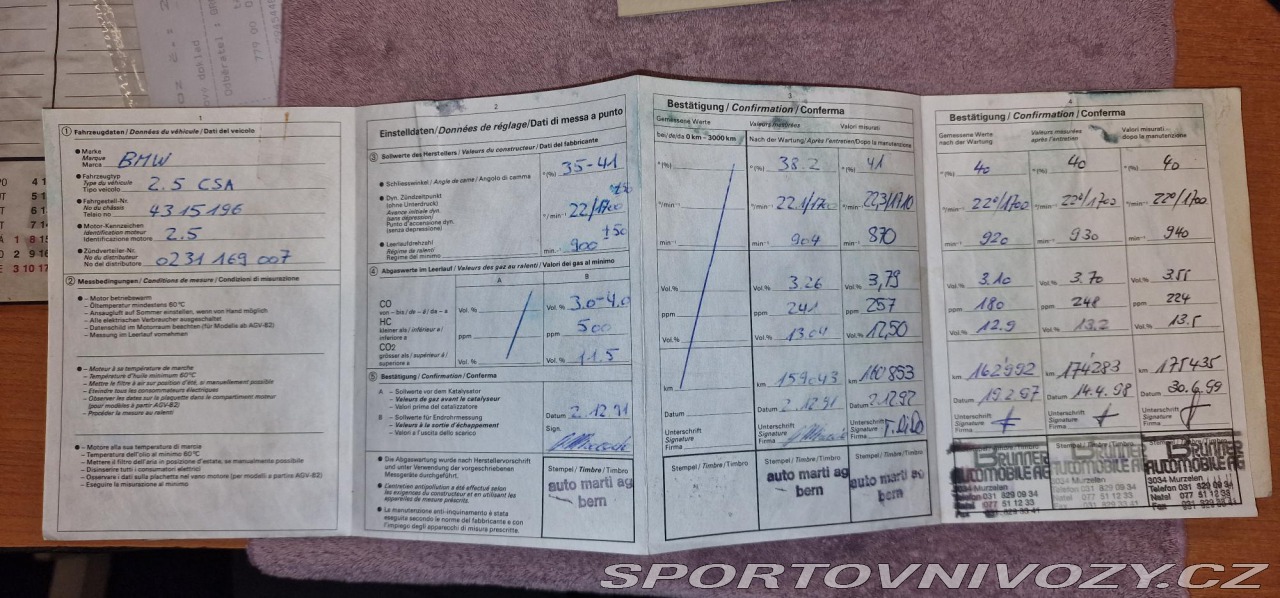 1
① Fahrzeugdaten / Données du véhicule / Dati del veicolo
● Marke
Marque
Marca BMW
● Fahrzeugtyp
Type du véhicule
Tipo veicolo 2.5 CSA
● Fahrgestell-Nr.
No du châssis
Telaio no 4315196
● Motor-Kennzeichen
Identification moteur
Identificazione motore 2.5
● Zündverteiler-Nr.
No du distributeur
No del distributore 0231 169 007
② Messbedingungen / Conditions de mesure / Condizioni di misurazione
● – Motor betriebswarm
– Öltemperatur mindestens 60°C
– Ansaugluft auf Sommer einstellen, wenn von Hand möglich
– Alle elektrischen Verbraucher ausgeschaltet
– Datenschild im Motorraum beachten (für Modelle ab AGV-82)
– Messung im Leerlauf vornehmen
● – Moteur à sa température de marche
– Température d'huile minimum 60°C
– Mettre le filtre à air sur position d'été, si manuellement possible
– Eteindre tous les consommateurs électriques
– Observer les dates sur la plaquette dans le compartiment moteur
(pour modèles à partir AGV-82)
– Procéder la mesure au ralenti
● – Motore alla sua temperatura di marcia
– Temperatura dell'olio al minimo 60°C
– Mettere il filtro d'aria in posizione d'estate, se manualmente possibile
– Disinserire tutti i consumatori elettrici
– Osservare i dati sulla placchetta nel vano motore (per modelli a partire AGV-82)
– Eseguire la misurazione al minimo
2
Einstelldaten / Données de réglage / Dati di messa a punto
③ Sollwerte des Herstellers / Valeurs du constructeur / Dati del fabbricante
● Schliesswinkel / Angle de came / Angolo di camma °(%) 35-41
● Dyn. Zündzeitpunkt
(ohne Unterdruck)
Avance initiale dyn.
(sans dépression)
Punto d'accensione din.
(senza depressione) °/min⁻¹ 22/1700
● Leerlaufdrehzahl
Régime de ralenti
Regime del minimo min.⁻¹ 900 ±50
④ Abgaswerte im Leerlauf / Valeurs des gaz au ralenti / Valori dei gas al minimo
A B
CO
von – bis / de – é / da – a Vol. % Vol. % 3.0-4.0
HC
kleiner als / inférieur à /
inferiore a ppm ppm 500
CO2
grösser als / supérieur é /
superiore a Vol. % Vol. % 11.5
⑤ Bestätigung / Confirmation / Conferma
A – Sollwerte vor dem Katalysator
– Valeurs de gaz avant le catalyseur
– Valori prima del catalizzatore
B – Sollwerte für Endrohrmessung
– Valeurs à la sortie d'échappement
– Valori a l'uscita dello scarico
Datum 2.12.91
Sign.
● Die Abgaswartung wurde nach Herstellervorschrift
und unter Verwendung der vorgeschriebenen
Messgeräte durchgeführt.
● L'entretien antipollution a été effectué selon
les exigences du constructeur et en utilisant les
appareils de mesure prescrits.
● La manutenzione anti-inquinamento è stata
eseguita secondo le norme del fabbricante e con
l'impiego degli apparecchi di misura prescritte.
Stempel / Timbre / Timbro
auto marti ag
bern
3
Bestätigung / Confirmation / Conferma
Gemessene Werte Valeurs mesurées Valori misurati
bei/de/da 0 km - 3000 km Nach der Wartung / Après l'entretien / Dopo la manutenzione
°(%) °(%) 38.2 °(%) 41
°/min⁻¹ °/min⁻¹ 22.1/1700 °/min⁻¹ 22,3/1710
min⁻¹ min⁻¹ 904 min⁻¹ 870
Vol.% Vol.% 3.26 Vol.% 3,79
ppm ppm 241 ppm 257
Vol.% Vol.% 13.04 Vol.% 12,50
km km 159043 km 160893
Datum Datum 2.12.91 Datum 2.12.92
Unterschrift Signature Firma Unterschrift Signature Firma Unterschrift Signature Firma
Stempel / Timbre / Timbro Stempel / Timbre / Timbro Stempel / Timbre / Timbro
auto marti ag auto marti ag
bern bern
4
Bestätigung / Confirmation / Conferma
Gemessene Werte Valeurs mesurées Valori misurati
nach der Wartung après l'entretien dopo la manutenzione
°(%) 40 °(%) 40 °(%) 40
°/min⁻¹ 22°/1700 °/min⁻¹ 22°/1700 °/min⁻¹ 22°/1700
min⁻¹ 920 min⁻¹ 930 min⁻¹ 940
Vol.% 3.10 Vol.% 3.70 Vol.% 3.55
ppm 180 ppm 248 ppm 224
Vol.% 12.9 Vol.% 13.2 Vol.% 13.5
km 162992 km 174283 km 175435
Datum 19.2.97 Datum 14.4.98 Datum 30.6.99
Unterschrift Signature Firma Unterschrift Signature Firma Unterschrift Signature Firma
Stempel / Timbre / Timbro Stempel / Timbre / Timbro Stempel / Timbre / Timbro
BRUNNER BRUNNER BRUNNER
AUTOMOBILE AG AUTOMOBILE AG AUTOMOBILE AG
3034 Murzelen 3034 Murzelen 3034 Murzelen
Telefon 031 829 09 34 Telefon 031 829 09 34 Telefon 031 829 09 34
Natel 077 51 12 33 Natel 077 51 12 33 Natel 077 51 12 33
Fax 031 829 33 41
SPORTOVNIVOZY.CZ